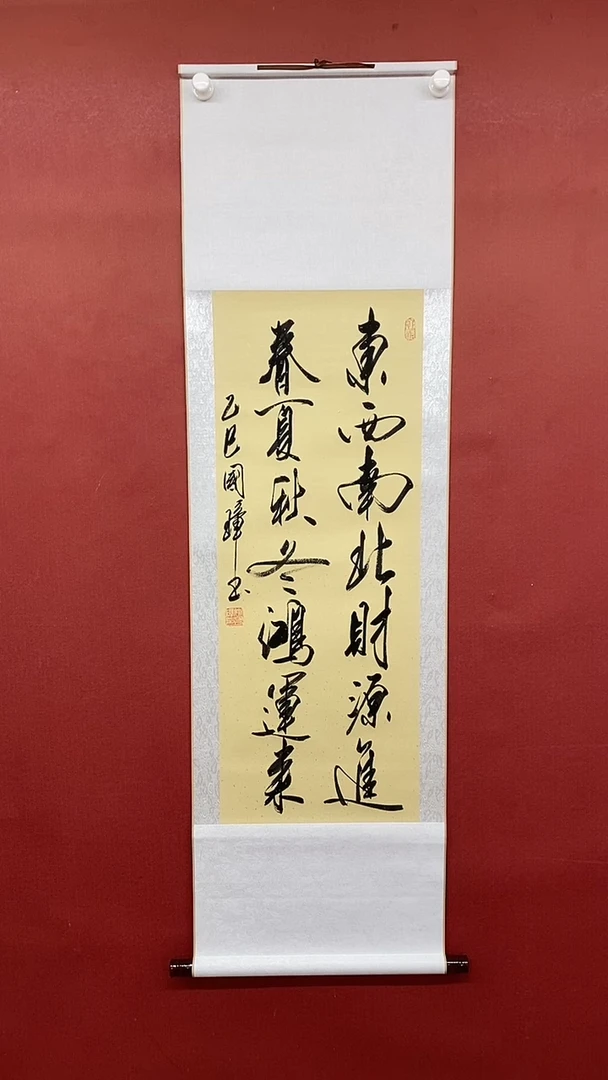 東西南北財源進
春夏秋冬鴻運來
乙巳國璋書